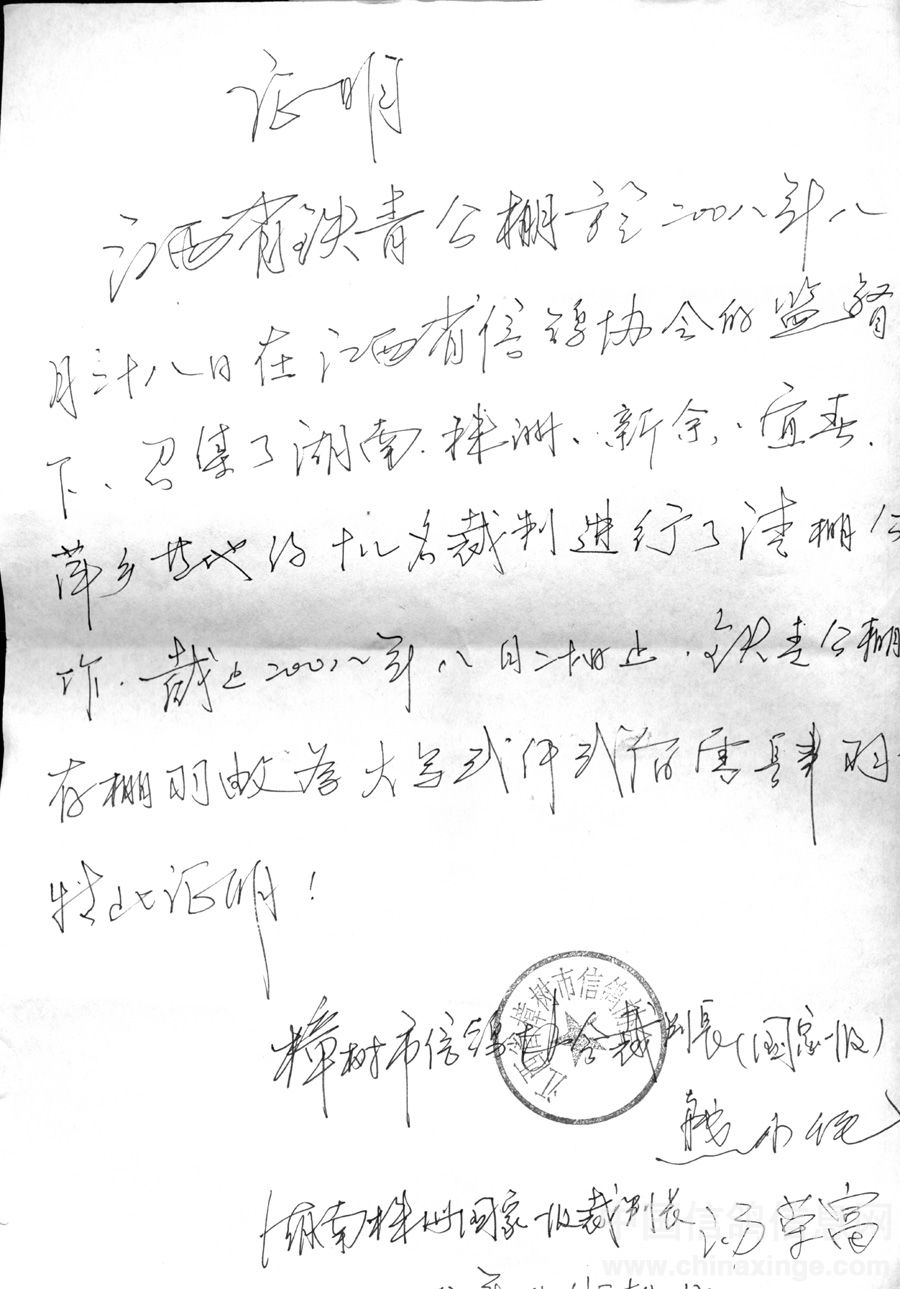 证明
江西省铁青公棚於二00八年八
月二十八日在江西省信鸽协会的监督
下、召集了湖南.株洲、新余、宜春.
萍乡等地的十几名裁判进行了清棚
作.截止二00八年八月二十八日止.铁青公棚
存棚羽数为大写弍仟弍佰零肆羽
特此证明!
江西省樟树市信鸽
樟树市信鸽协会裁判长(国家一级)
熊小
湖南株洲国家一级裁判长 汤学富
中国信鸽信息网
www.chinaxinge.com